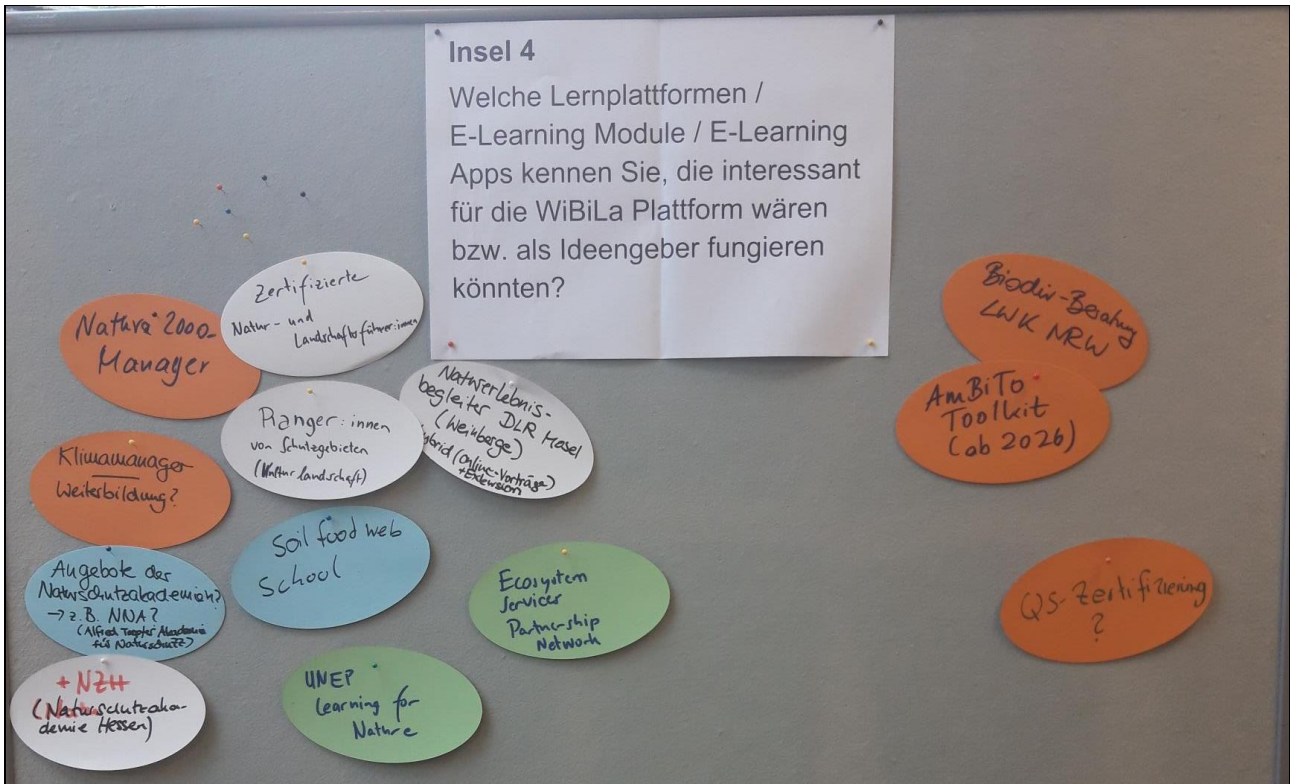 Insel 4
Welche Lernplattformen /
E-Learning Module / E-Learning
Apps kennen Sie, die interessant
für die WiBiLa Plattform wären
bzw. als Ideengeber fungieren
könnten?
Natura 2000-
Manager
Zertifizierte
Natur- und
Landschaftsführer:innen
Ranger:innen
von Schutzgebieten
(Kulturlandschaft)
Naturerlebnis-
begleiter DLR Mosel
(Weinberge)
hybrid (Online-Vorträge)
+ Exkursion
Klimamanager
Weiterbildung?
Soil food web
School
Angebote der
Naturschutzakademien?
→ z.B. NNA?
(Alfred Toepfer Akademie
für Naturschutz)
+ NZH
(Naturschutzaka-
demie Hessen)
Ecosystem
Services
Partnership
Network
UNEP
Learning for
Nature
Biodiv-Beratung
LWK NRW
AmBiTo
Toolkit
(ab 2026)
QS-Zertifizierung
?